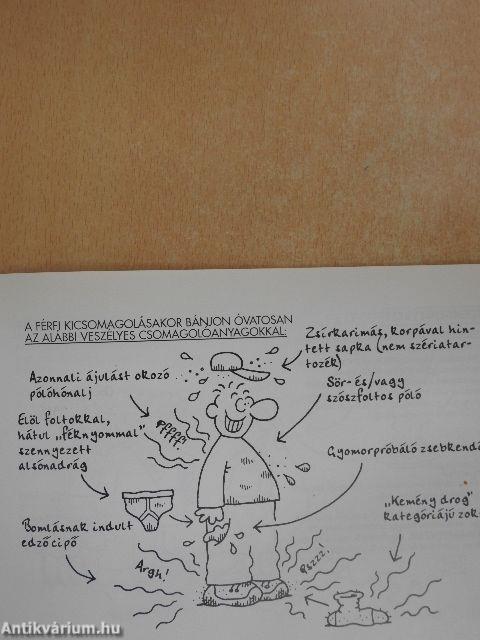 A FÉRFI KICSOMAGOLÁSAKOR BÁNJON ÓVATOSAN
AZ ALÁBBI VESZÉLYES CSOMAGOLÓANYAGOKKAL:
Zsírkarimás, korpával hin-
tett sapka (nem szériatar-
tozék)
Azonnali ájulást okozó
pólóhónalj
Sör- és/vagy
szószfoltos póló
Elöl foltokkal,
hátul "féknyommal"
szennyezett
alsónadrág
Pffff!
Gyomorpróbáló zsebkend
"Kemény drog"
kategóriájú zok
Bomlásnak indult
edzőcipő
Argh!
Pszzz!
Antikvárium.hu